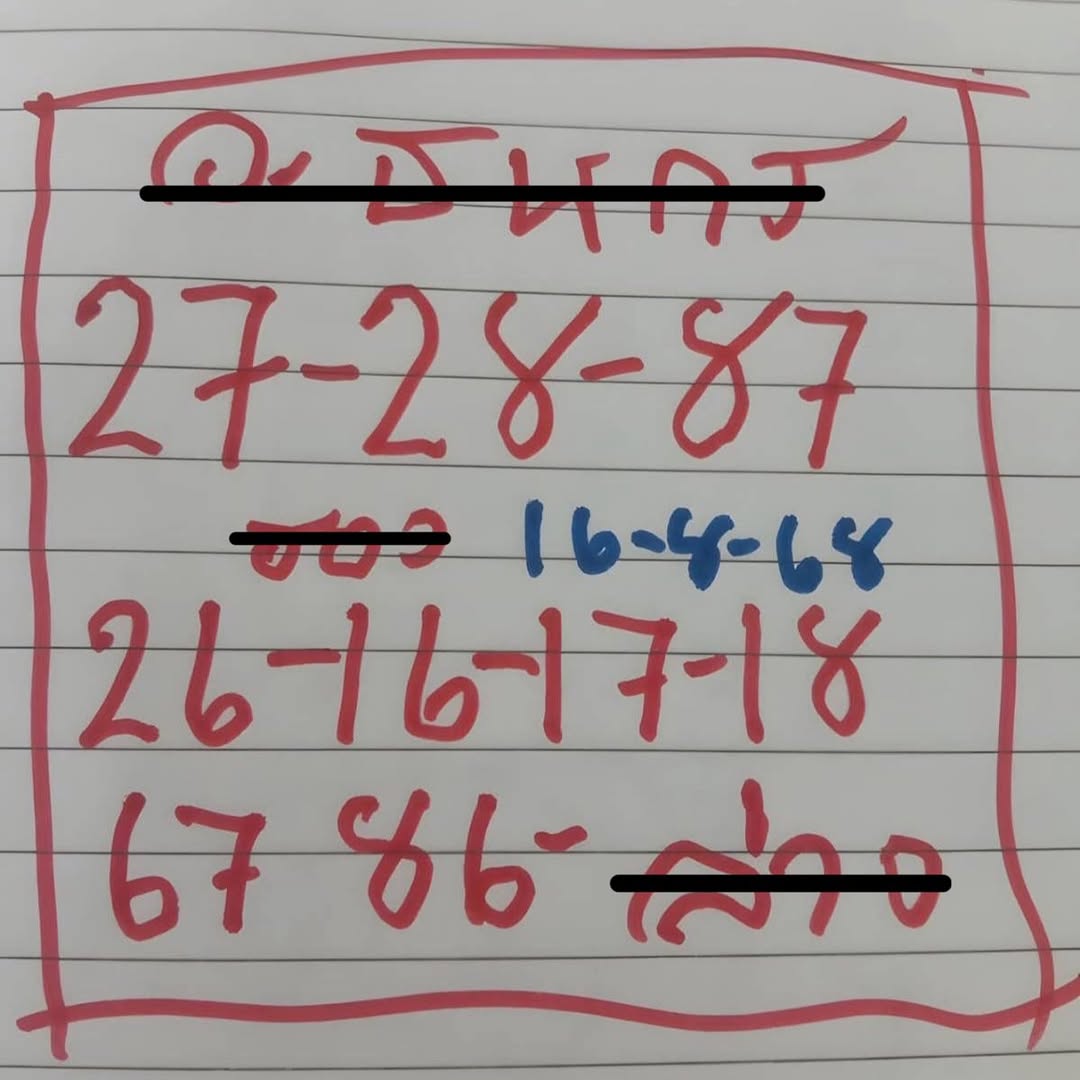 27-28-87
16-8-68
26-16-17-18
67 86-